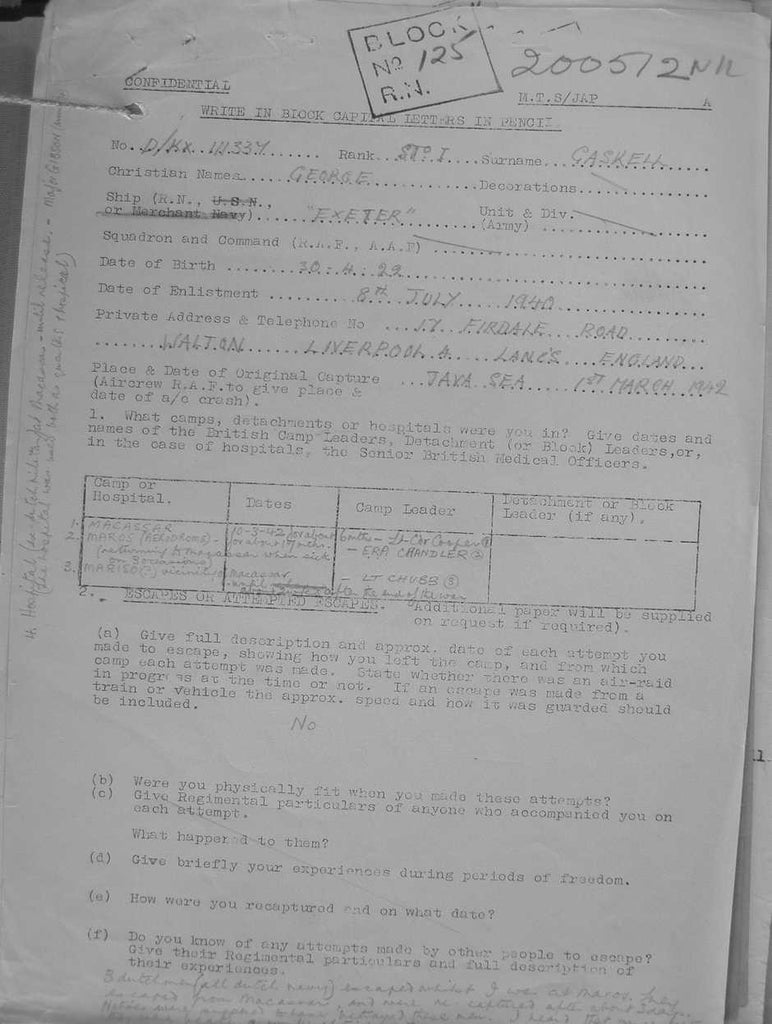 BLOCK
Nº 125
R.N.
200512NR
CONFIDENTIAL
M.T.S/JAP A
WRITE IN BLOCK CAPITAL LETTERS IN PENCIL.
No. D/KX. 111.337 Rank STO. I Surname GASKELL
Christian Names GEORGE Decorations
Ship (R.N., U.S.N., or Merchant Navy) "EXETER" Unit & Div. (Army)
Squadron and Command (R.A.F., A.A.F)
Date of Birth 30. 4. 22
Date of Enlistment 8TH JULY 1940
Private Address & Telephone No 17 FIRDALE ROAD
WALTON LIVERPOOL 4. LANCS ENGLAND
Place & Date of Original Capture JAVA SEA 1ST MARCH 1942
(Aircrew R.A.F. to give place &
date of a/c crash).
1. What camps, detachments or hospitals were you in? Give dates and
names of the British Camp Leaders, Detachment (or Block) Leaders, or,
in the case of hospitals, the Senior British Medical Officers.
Camp or Hospital. Dates Camp Leader Detachment or Block Leader (if any).
1. MACASSAR 10-3-42 for about 6 mths - Lt Cdr Cooper ①
2. MAROS (AERODROME) - for about - ERA CHANDLER ②
(returning to Macassar when sick
on occasions)
3. MARISO(?) vicinity of Macassar - LT CHUBB ③
until after the end of the war
2. ESCAPES OR ATTEMPTED ESCAPES. (Additional paper will be supplied
on request if required).
(a) Give full description and approx. date of each attempt you
made to escape, showing how you left the camp, and from which
camp each attempt was made. State whether there was an air-raid
in progress at the time or not. If an escape was made from a
train or vehicle the approx. speed and how it was guarded should
be included.
No
(b) Were you physically fit when you made these attempts?
(c) Give Regimental particulars of anyone who accompanied you on
each attempt.
What happened to them?
(d) Give briefly your experiences during periods of freedom.
(e) How were you recaptured and on what date?
(f) Do you know of any attempts made by other people to escape?
Give their Regimental particulars and full description of
their experiences.
3 dutch men (all dutch navy) escaped whilst I was at Maros, they
escaped from Macassar, and were re-captured after about 3 days.
Natives were supposed to have betrayed these men. I
4. Hospital Macassar - until release. - Major GIBSON
(the hospital was used both as quarters & hospital)
11